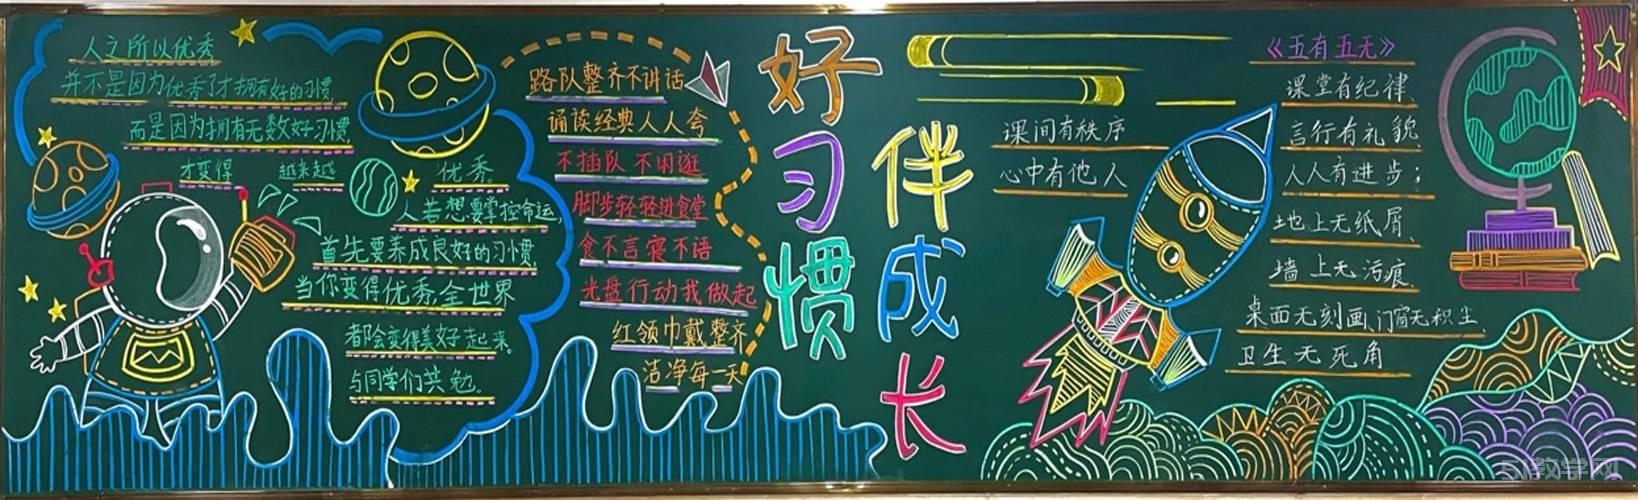 人之所以优秀
并不是因为优秀了才拥有好的习惯,
而是因为拥有无数好习惯,
才变得 越来越
优秀。
人若想要掌控命运
首先要养成良好的习惯,
当你变得优秀,全世界
都会变得美好起来。
与同学们共勉。
路队整齐不讲话
诵读经典人人夸
不插队 不闲逛
脚步轻轻进食堂
食不言寝不语
光盘行动我做起
红领巾戴整齐
洁净每一天
好习惯
伴成长
课间有秩序
心中有他人
《五有五无》
课堂有纪律、
言行有礼貌、
人人有进步;
地上无纸屑、
墙上无污痕、
桌面无刻画、门窗无积尘、
卫生无死角
51教学网